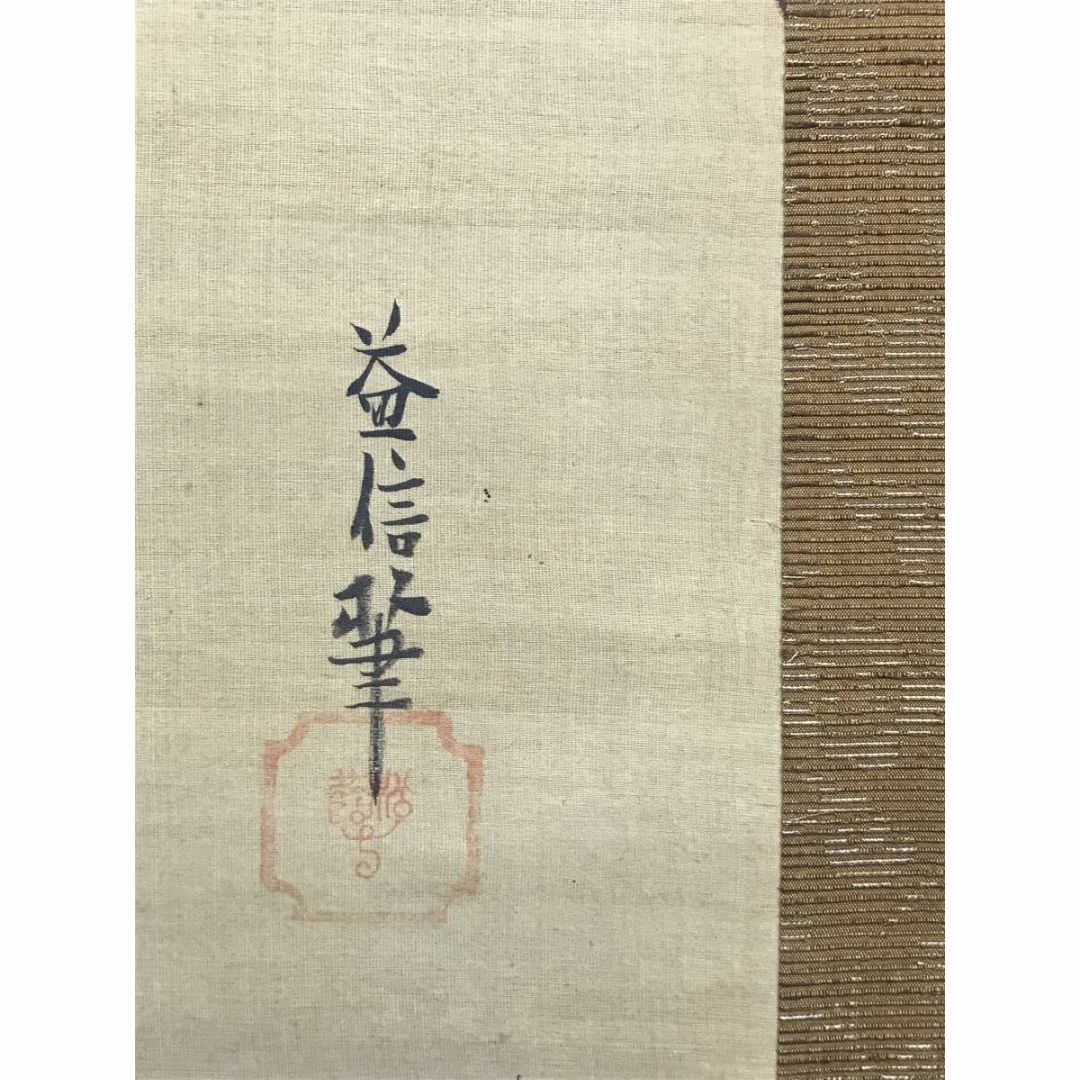 益信筆